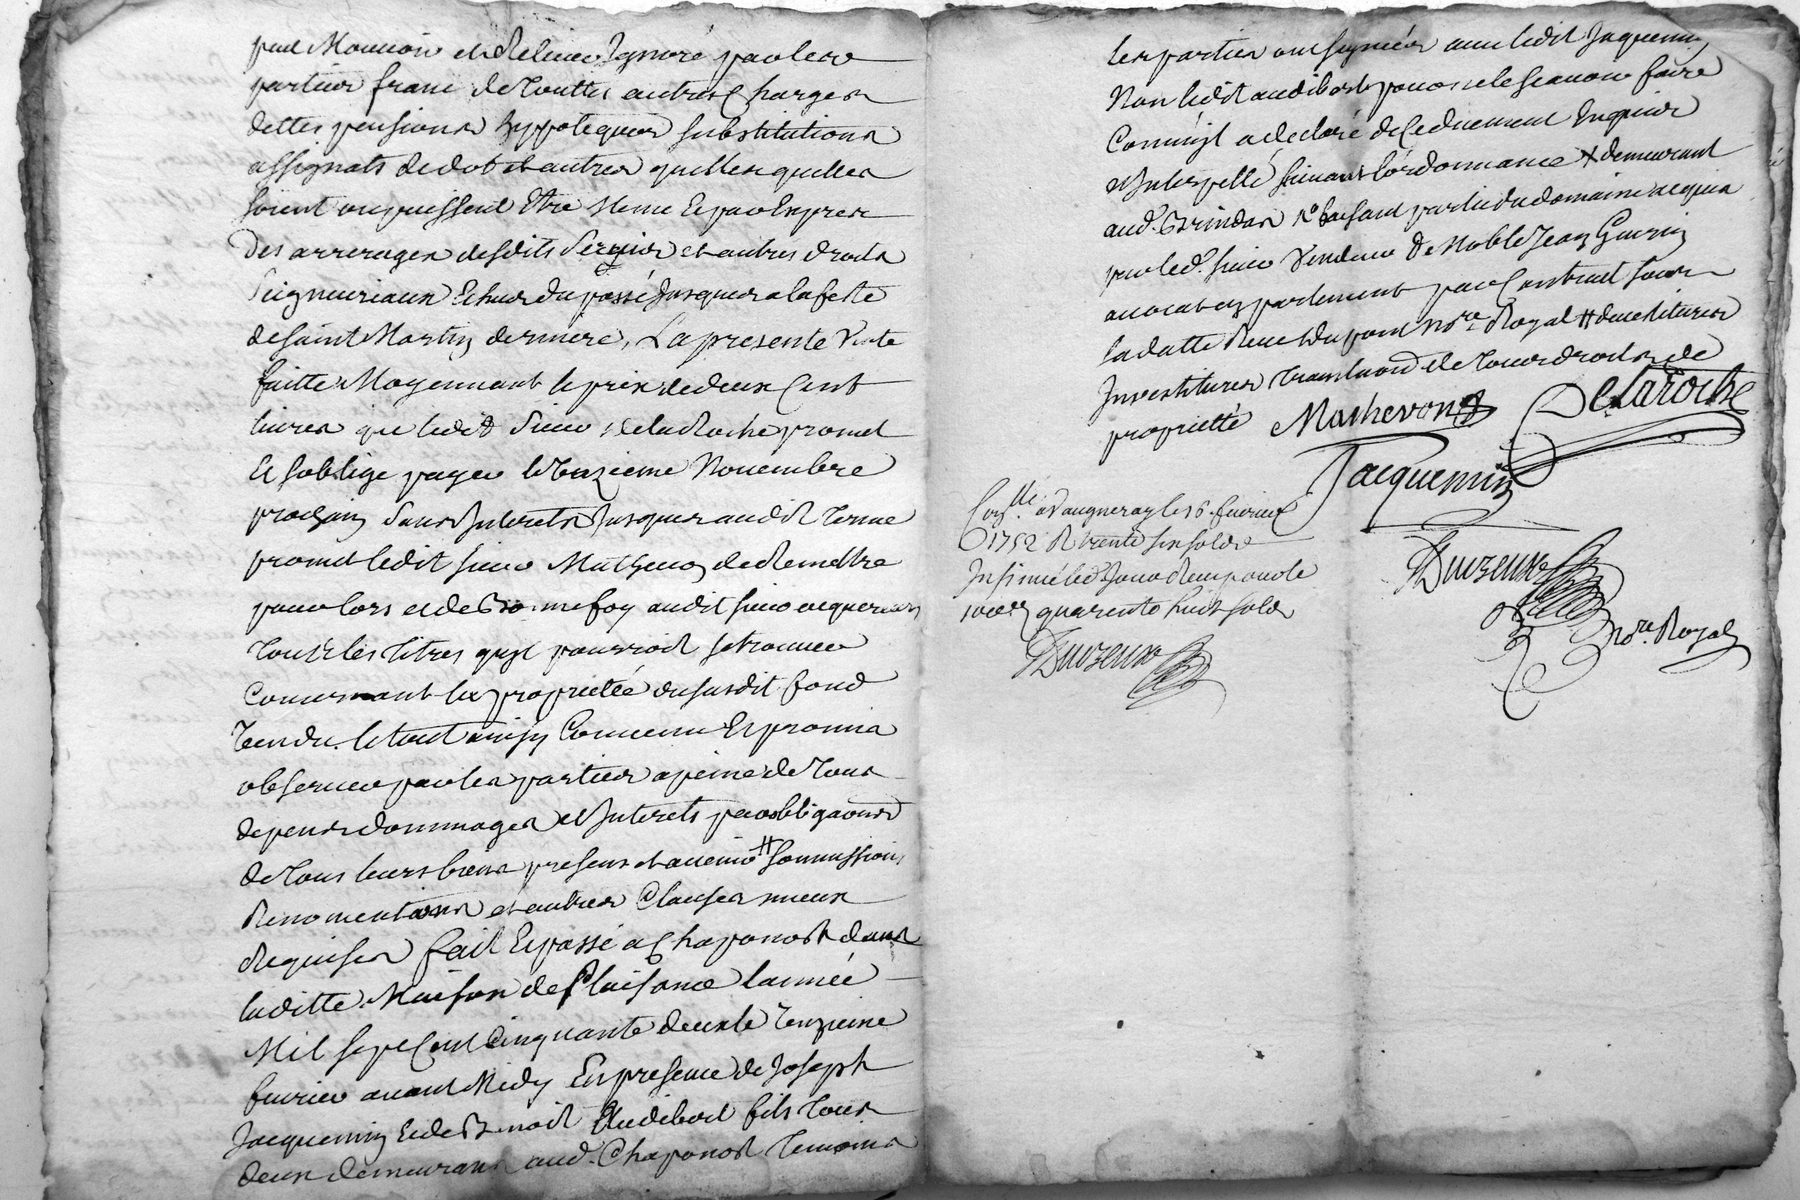 par Monnoie et Relieue Ignoré par les
parties franc de Touttes autres Charges
dettes pensions hypoteques substitutions
assignats de dot et autres quelles quelles
soient ou puissent Etre Meme Et par Expres
Des arrerages desdits Servis et autres droits
Seigneuriaux Echus du passé Jusques a la feste
de Saint Martin derniere, La presente Vente
faitte Moyennant le prix de deux Cent
livres que ledit Sieur delaRoche promet
Et soblige payer le Onzieme Novembre
prochain sans Interets Jusques audit Terme
promet ledit sieur Mathevon de Remettre
pour lors et de Bonne foy audit sieur acquereur
Tous les Titres quil pourroit se trouver
Concernant la propriettée du susdit fond
Vendu. le tout ainsy Convenu Et promis
observer par les parties a peine de Tous
depens dommages et Interets par obligaons
de Tous leurs biens presens et avenir # soumissions
Renonciations et autres Clauses mieux
Requises fait Et passé a Chaponost dans
laditte Maison de Plaisance lannée
Mil sept Cent Cinquante deux le Treizieme
fevrier avant Midy En presence de Joseph
Jacquemin Et de Benoit Audibert fils Tous
deux demeurans aud. Chaponost Temoins
les parties ont signées avec ledit Jaquemin
Non ledit audibert pour ne le scavoir faire
Comm'il a declaré de ce duement Enquis
et Interpellé suivant lordonnance X demeurant
aud. Brindas # faisant partie du domaine acquis
par led. sieur Vendeur de Noble Jean Guerin
avocat en parlement par Contract sous
la datte Receu Dupont Nore. Royal # devestitures
Investitures translaõns de Tous droits de
propriettè Mathevon DelaRoche
Jacquemin
Conllé. a Vaugneray le 16. fevrier
1752 R trente six sols
Insinué led. Jour Reçu pour le
100e. quarente huit sols
Duvzeux
Duvzeux
Nore. Royal